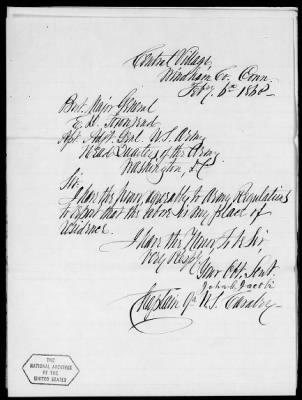 Central Village,
Windham Co. Conn.
Feby. 6th 1868
Bvt. Major General
E. D. Townsend
Asst. Adjt. Genl. U.S. Army
Head Quarters of the Army
Washington, D.C.
Sir:
I have the honor, agreeably to Army Regulations
to report that the above is my place of
residence.
I have the honor to be Sir
Very Respy.
Your Obt. Servt.
John C. Jacobi
Captain 9th U.S. Cavalry
THE
NATIONAL ARCHIVES
OF THE
UNITED STATES